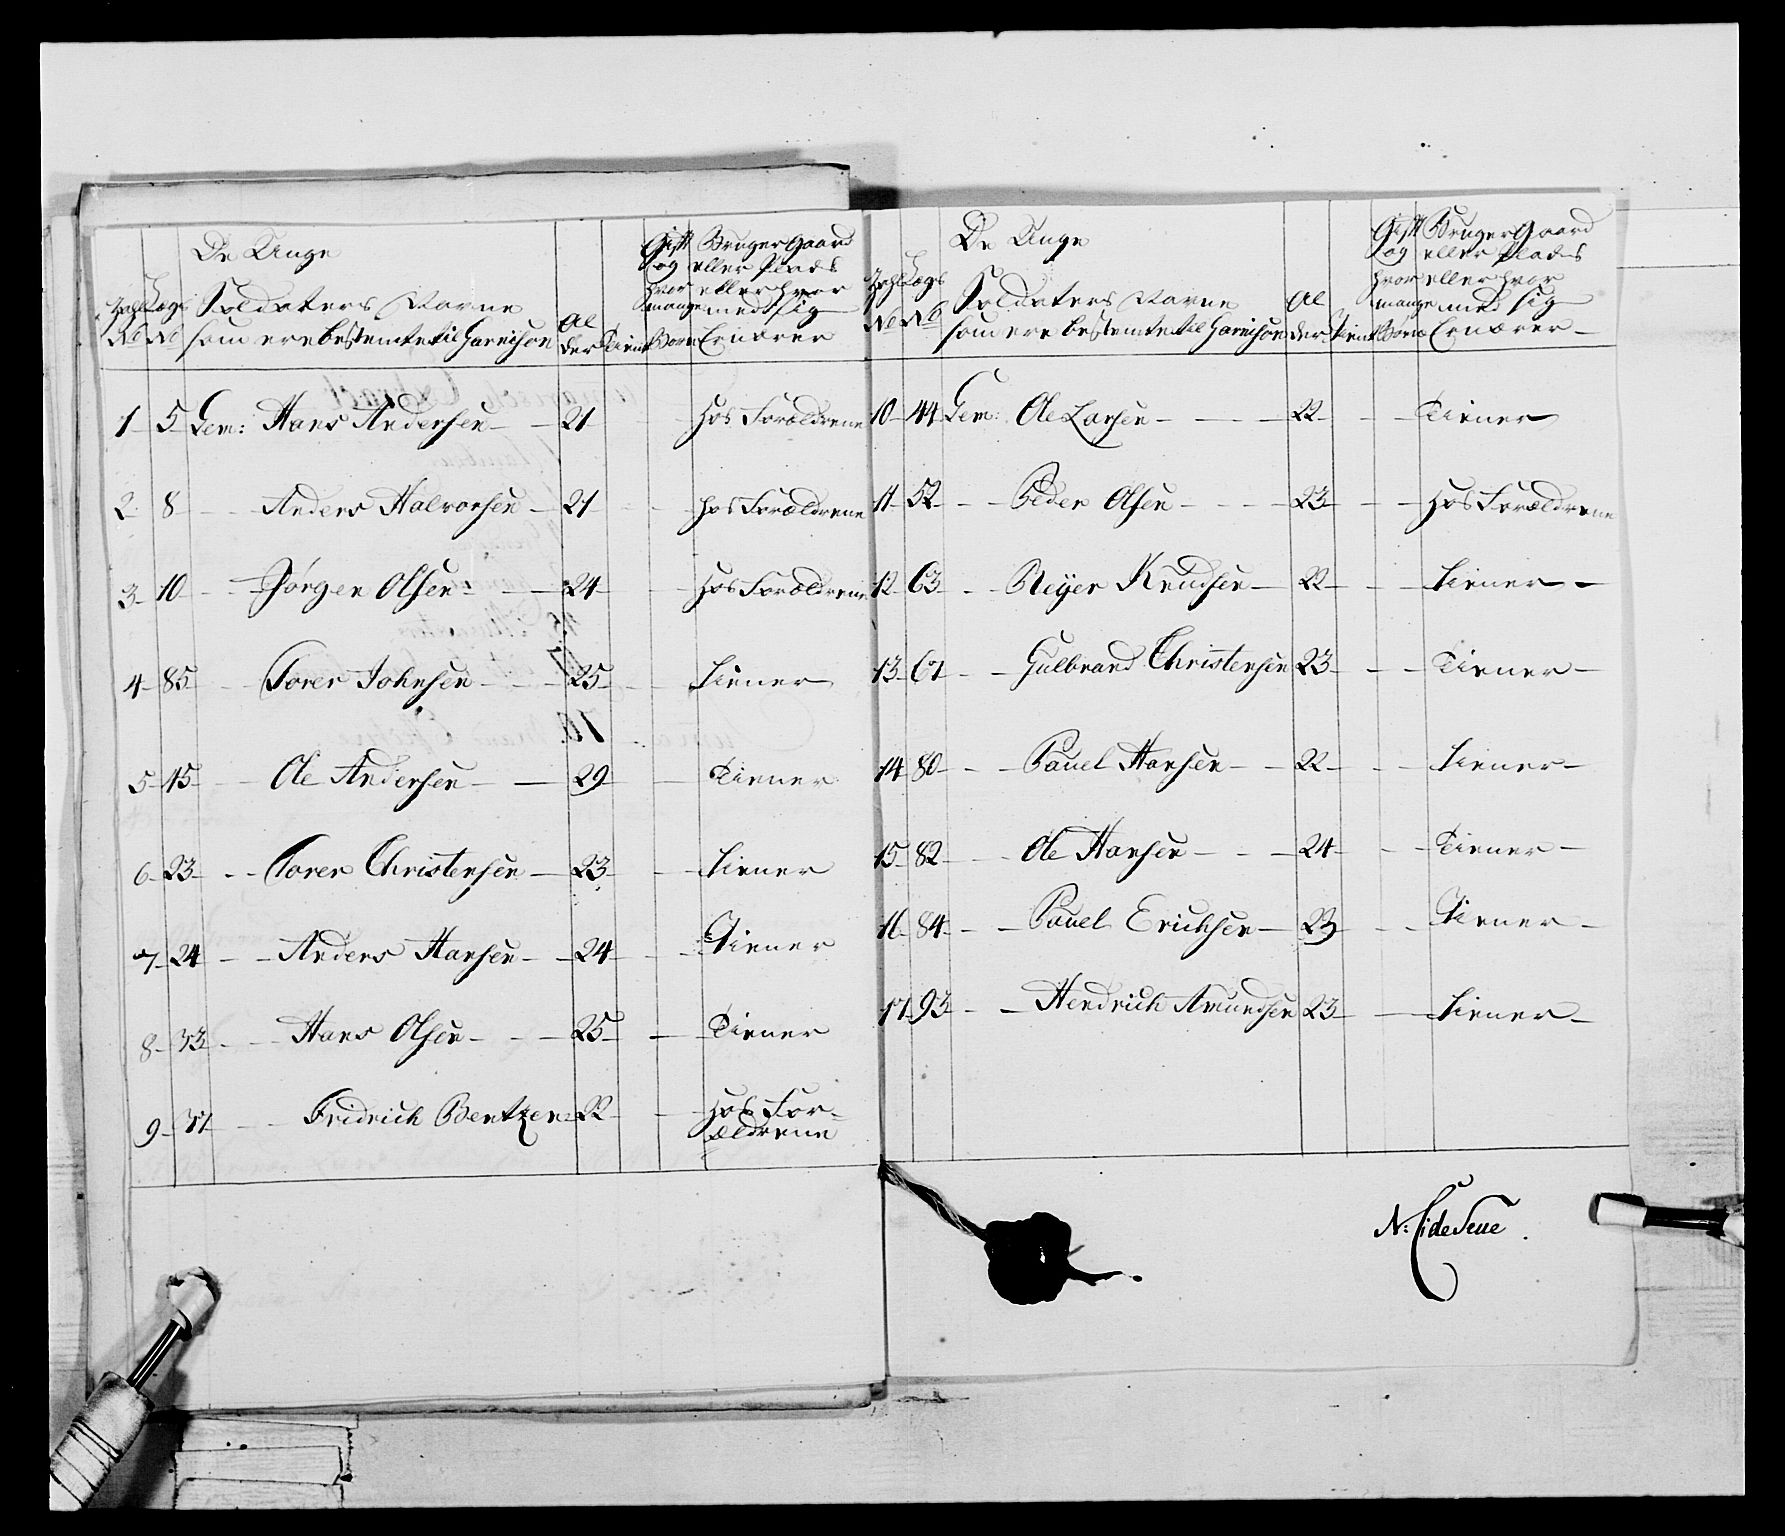 De Unge
Soldaters Navne
som ere bestemte til Garnison
Zahl No
Lægs No
Al
der
Tient
Gift
og
hvor
mange
Børn
Bruger Gaard
eller Plads
eller hvor
med sig
Ernærer
1 5 Gem: Hans Andersen 21 Hos Forældrene
2 8 Anders Halvorsen 21 Hos Forældrene
3 10 Jørgen Olsen 24 Hos Forældrene
4 85 Torer Johnsen 25 Tiener
5 15 Ole Andersen 29 Tiener
6 23 Torer Christensen 23 Tiener
7 24 Anders Hansen 24 Tiener
8 33 Hans Olsen 25 Tiener
9 37 Fridrich Bentzen 22 Hos For-
ældrene
De Unge
Soldaters Navne
som ere bestemte til Garnison
Zahl No
Lægs No
Al
der
Tient
Gift
og
hvor
mange
Børn
Bruger Gaard
eller Plads
eller hvor
med sig
Ernærer
10 44 Gem: Ole Larsen 22 Tiener
11 52 Peder Olsen 23 Hos Forældrene
12 63 Reyer Knudsen 22 Tiener
13 67 Gulbrand Christensen 23 Tiener
14 80 Pauel Hansen 22 Tiener
15 82 Ole Hansen 24 Tiener
16 84 Pauel Erichsen 23 Tiener
17 93 Hendrich Amundsen 23 Tiener